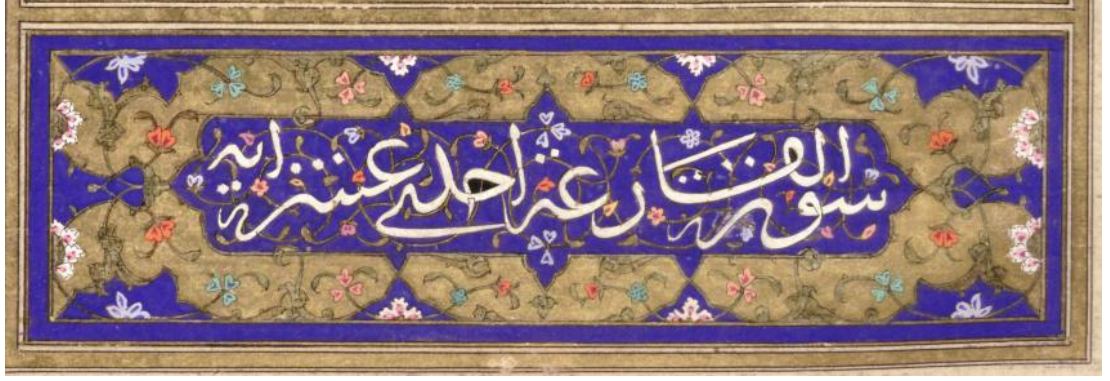 سورة القارعة احدی عشرة اية